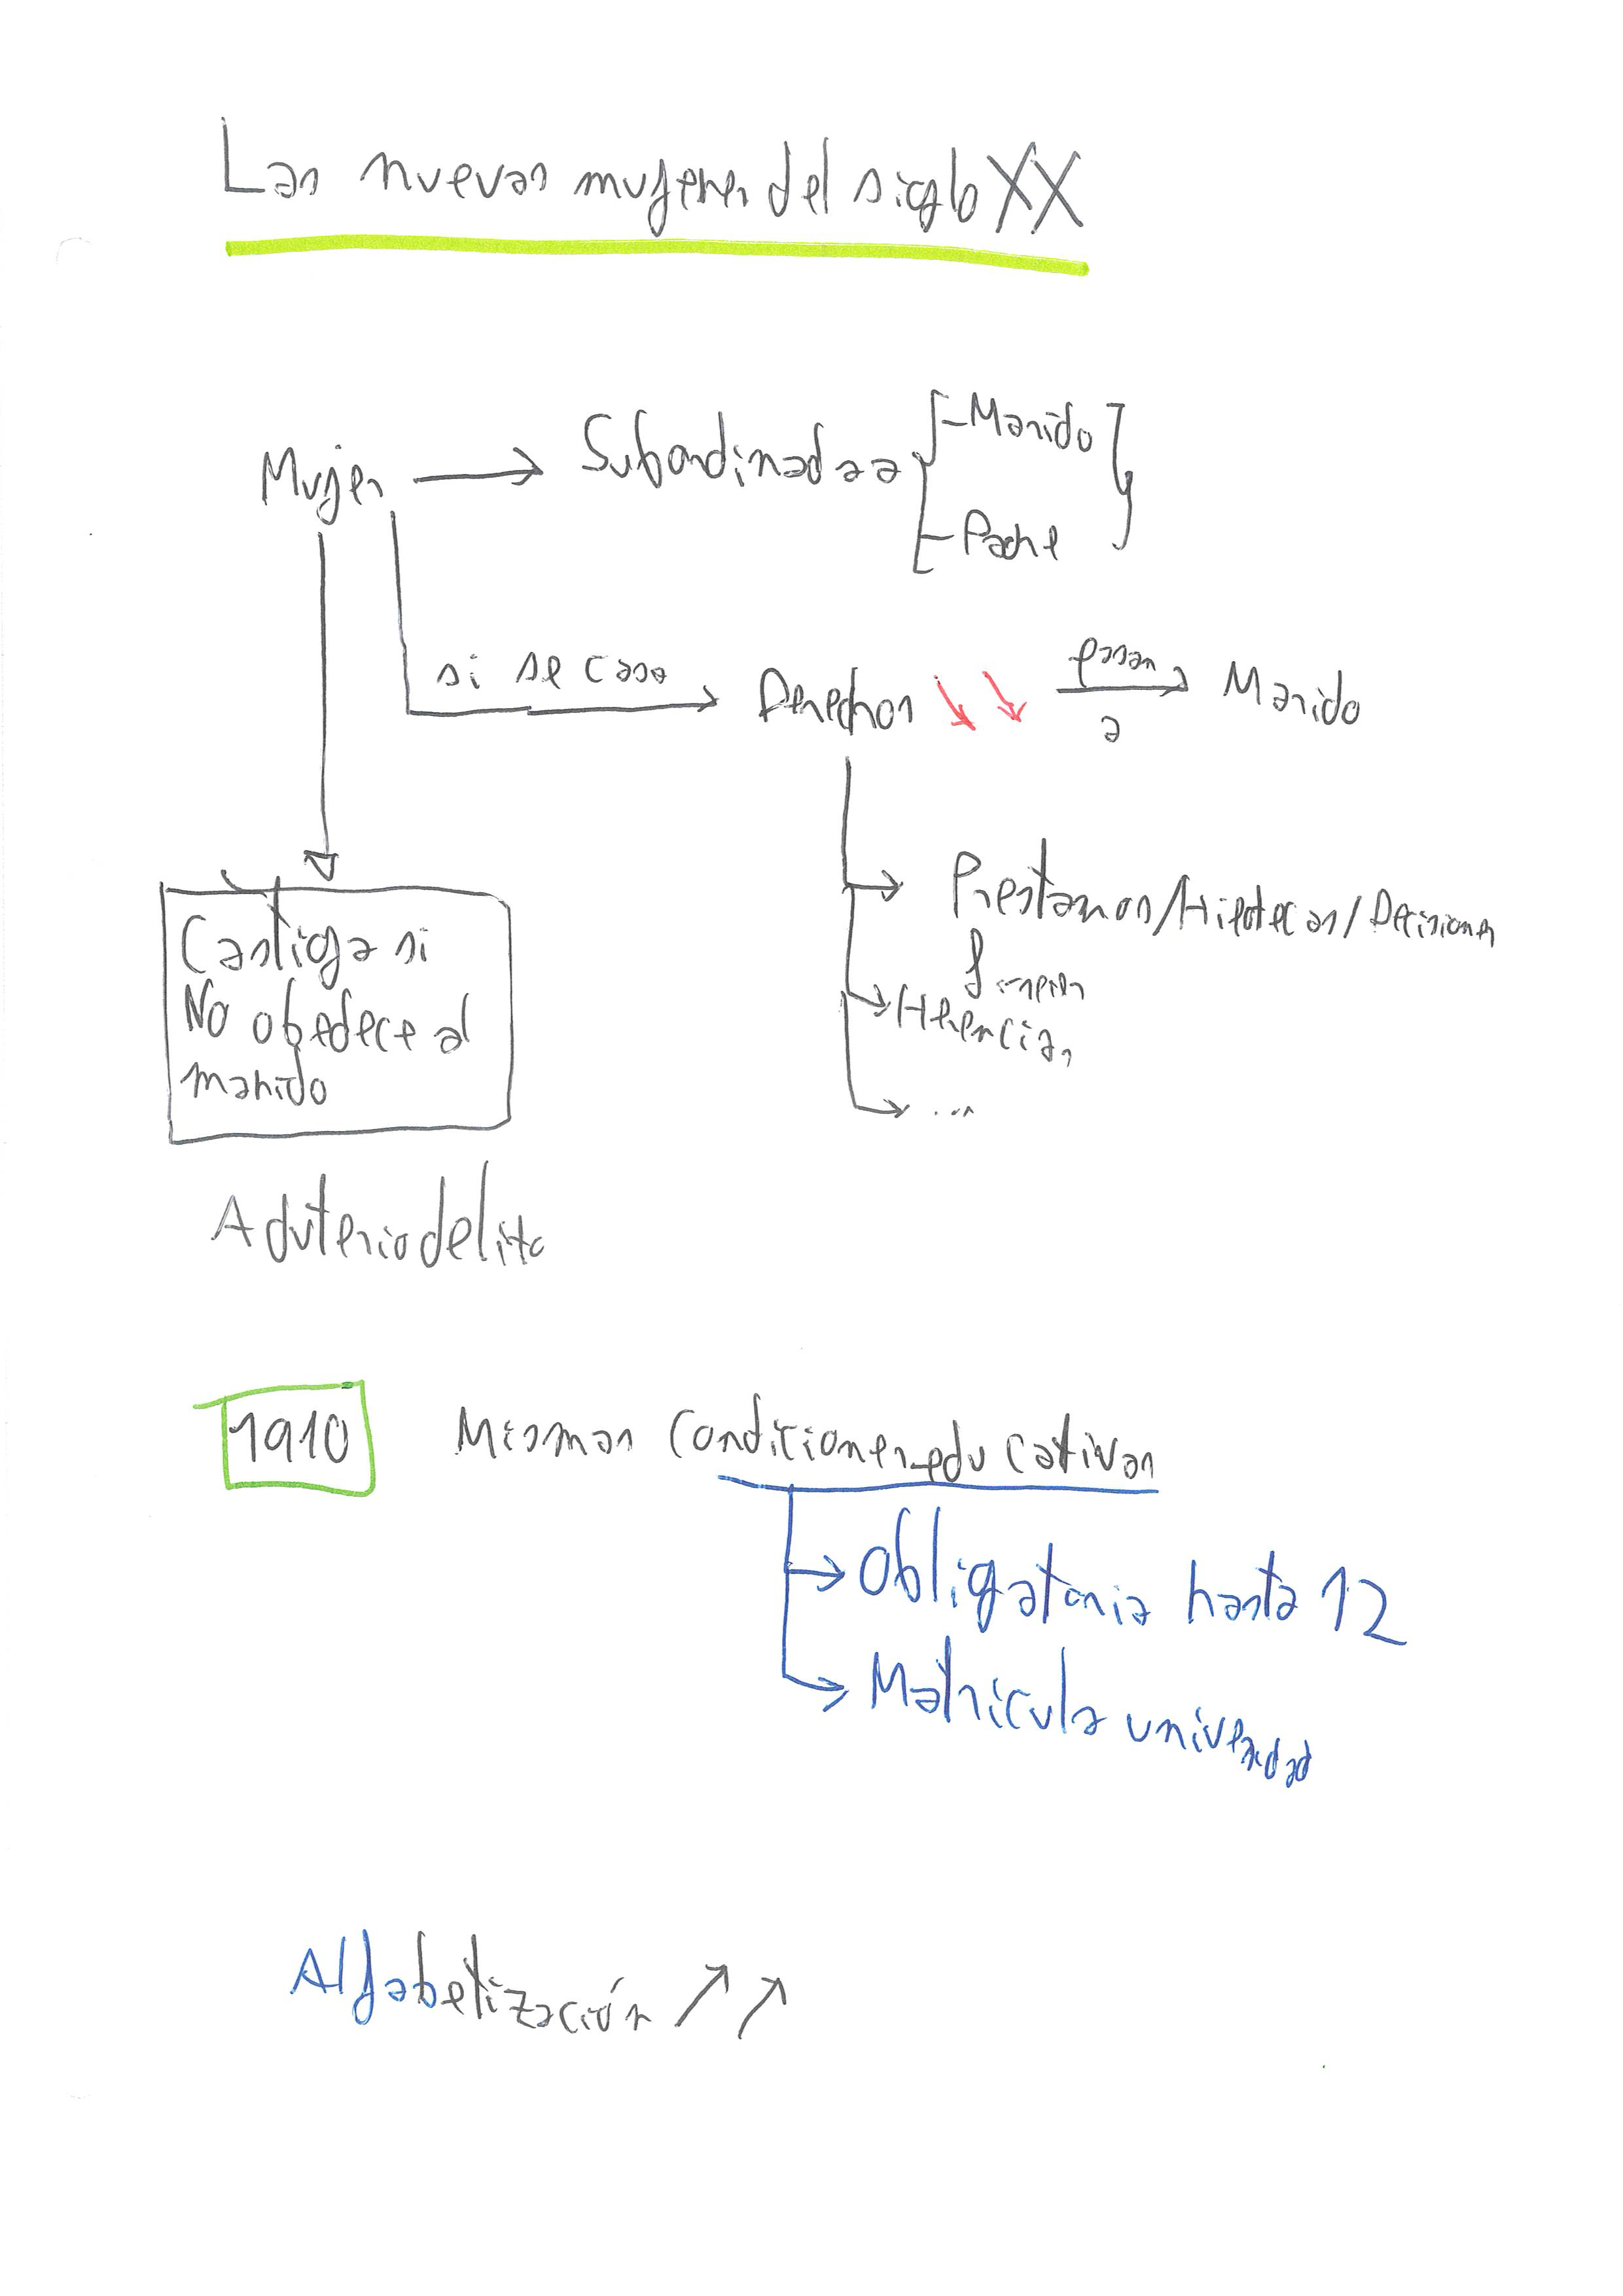 Las nuevas mujeres del siglo XX
Mujer → Subordinada a { - Marido
- Padre }
si se casa → Derechos ↘ ↘ pasan a → Marido
→ Prestamos/Hipotecas/Decisiones
→ Herencias
→ ...
Castiga si
No obedece al
marido
Aduterio delito
1910 Mismas condiciones educativas
→ Obligatoria hasta 12
→ Matricula universidad
Alfabetización ↗ ↗